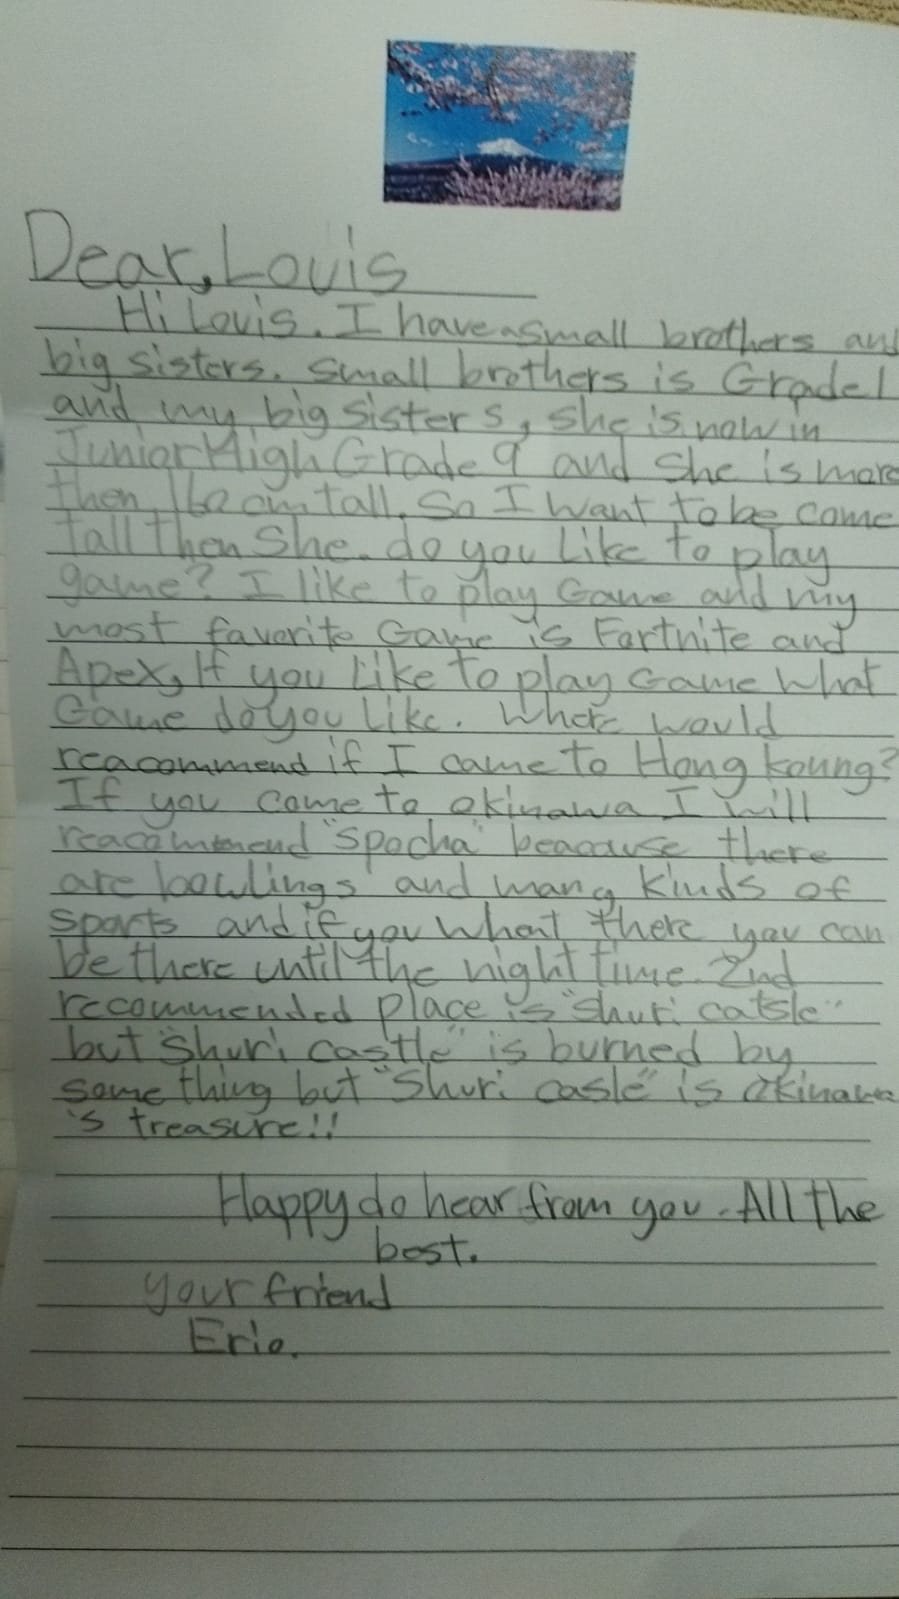 Dear, Louis
Hi Louis. I have a small brothers and
big sisters. small brothers is Grade1
and my big sisters, she is now in
Junior High Grade 9 and she is more
then 160cm tall. So I want to be come
tall then she. do you like to play
game? I like to play Game and my
most favorite Game is Fortnite and
Apex, If you like to play Game what
Game do you like. Where would
reacommend if I came to Hong koung?
If you come to okinawa I will
reacommend "spocha" beacause there
are bowlings and many kinds of
sports and if you what there you can
be there until the night time. 2nd
recommended place is "shuri catsle"
but "shuri castle" is burned by
some thing but "Shuri casle" is okinawa
's treasure!!
Happy do hear from you. All the
best.
your friend
Erio.